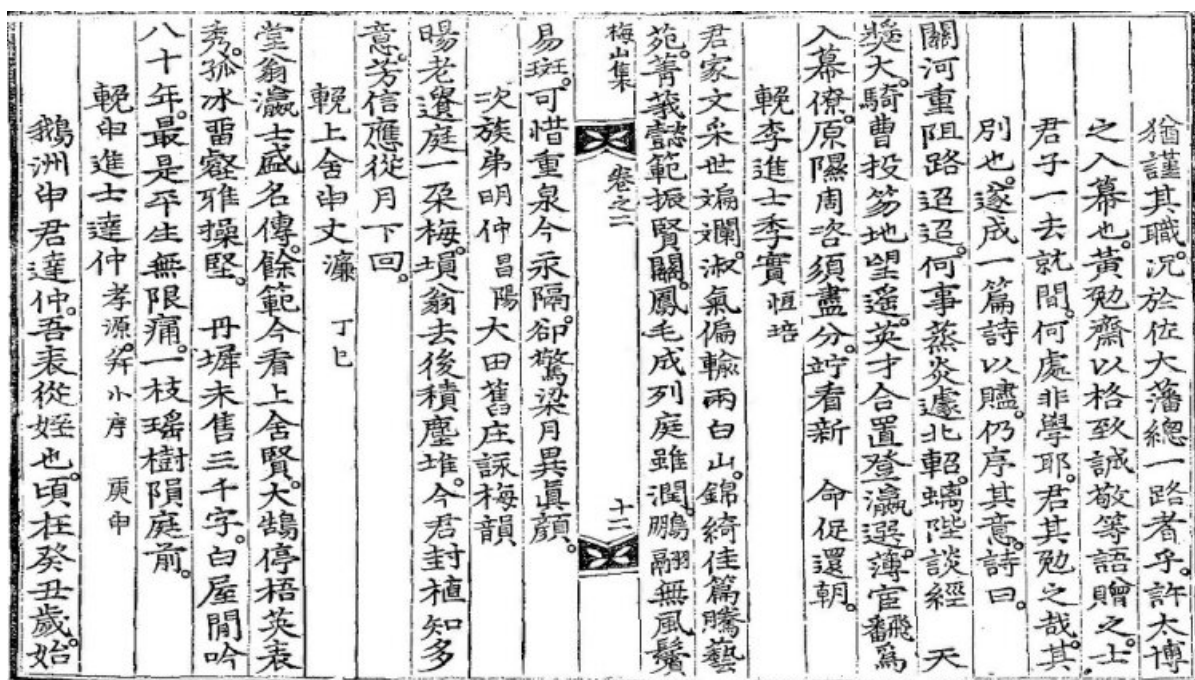 猶謹其職。况於佐大藩總一路者乎。許太博
之入幕也。黃勉齋以格致誠敬等語贈之。士
君子一去就間。何處非學耶。君其勉之哉。其
別也。遂成一篇詩以贐。仍序其意。詩曰。
關河重阻路迢迢。何事蒸炎遽北軺。螭陛談經 天
奬大。騎曹投笏地望遥。英才合置登瀛選。薄宦翻爲
入幕僚。原隰周咨須盡分。竚看新 命促還朝。
輓李進士季實 恒培
君家文采世斒斕。淑氣偏輸兩白山。錦綺佳篇騰藝
苑。菁莪懿範振賢關。鳳毛成列庭雖潤。鵬翮無風鬢
梅山集 卷之二 十二
易斑。可惜重泉今永隔。卻驚梁月異眞顔。
次族弟明仲 昌陽 大田舊庄詠梅韻
暘老遺庭一朶梅。塤翁去後積塵堆。今君封植知多
意。芳信應從月下回。
輓上舍申丈 濂 丁巳
堂翁瀛士盛名傳。餘範今看上舍賢。大鵠停梧英表
秀。孤冰霤壑雅操堅。 丹墀未售三千字。白屋閒吟
八十年。最是平生無限痛。一枝瑶樹隕庭前。
輓申進士達仲 孝源。幷小序 庚申
鵝洲申君達仲。吾表從姪也。頃在癸丑歲。始